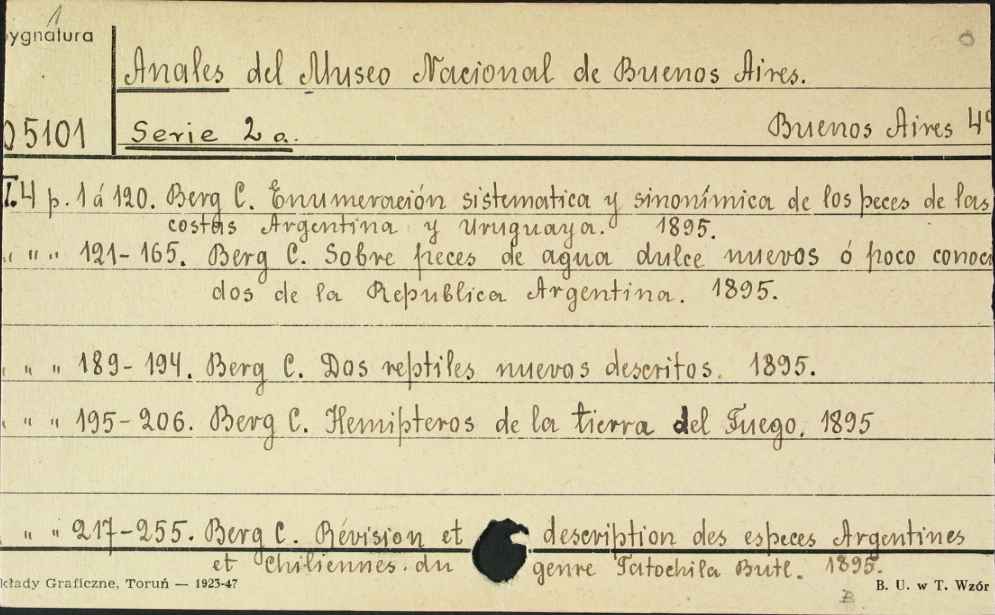 1
ygnatura
Anales del Museo Nacional de Buenos Aires.
05101 Serie 2a. Buenos Aires 4º
T.4 p. 1 á 120. Berg C. Enumeración sistematica y sinonímica de los peces de las
costas Argentina y Uruguaya. 1895.
" " " 121-165. Berg C. Sobre peces de agua dulce nuevos ó poco conoci
dos de la Republica Argentina. 1895.
" " " 189-194. Berg C. Dos reptiles nuevos descritos. 1895.
" " " 195-206. Berg C. Hemipteros de la tierra del Fuego. 1895
" " 217-255. Berg C. Révision et description des especes Argentines
et Chiliennes. du genre Tatochila Butl. 1895.
kłady Graficzne, Toruń — 1923-47 B. U. w T. Wzór